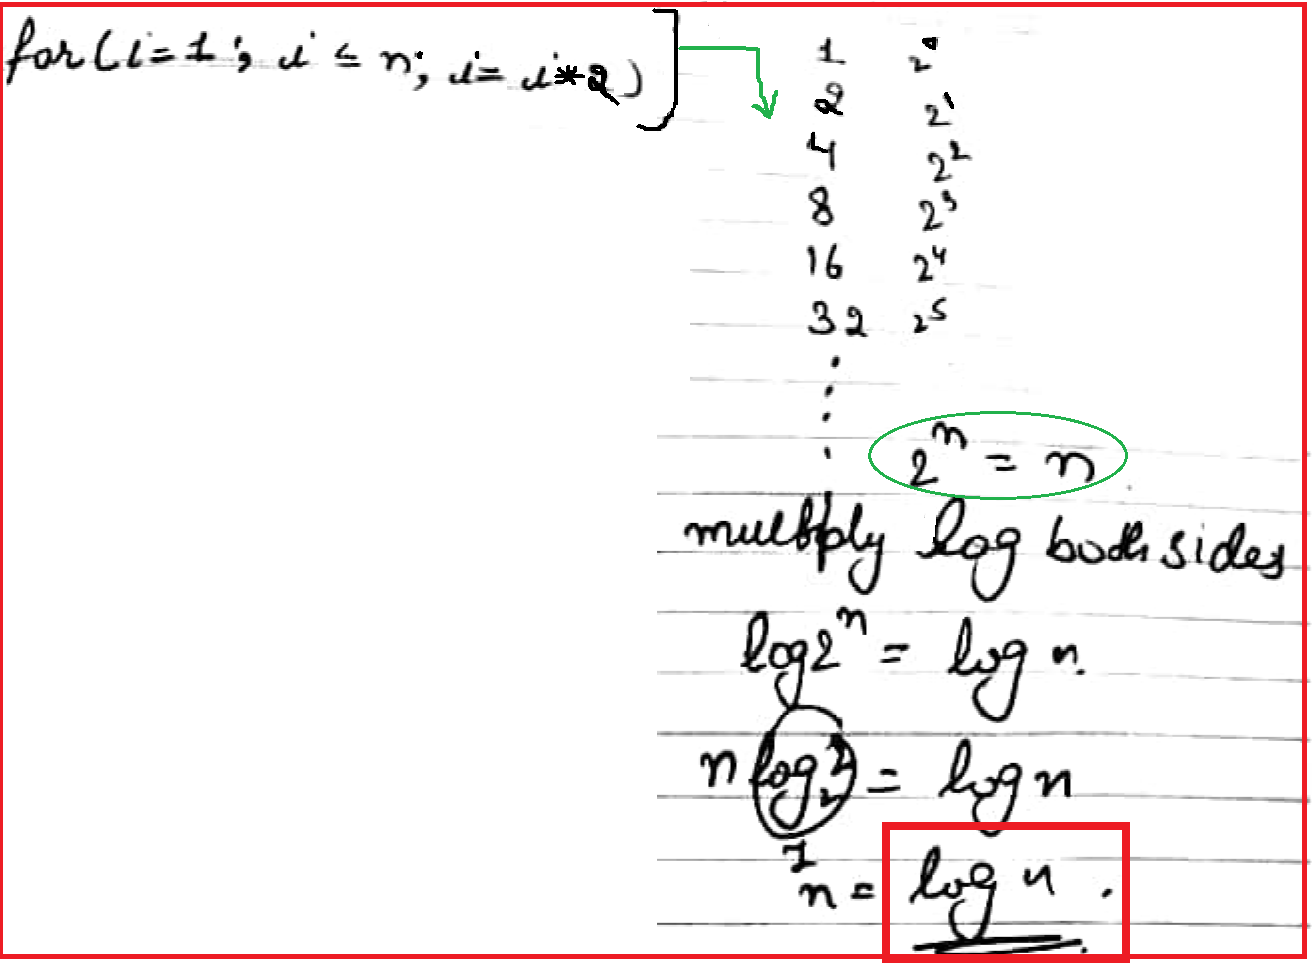 for(i=1; i ≤ n; i= i*2)
1 2⁰
2 2¹
4 2²
8 2³
16 2⁴
32 2⁵
2ⁿ = n
multiply log both sides
log2ⁿ = log n.
n log₂2 = log n
1
n = log n.